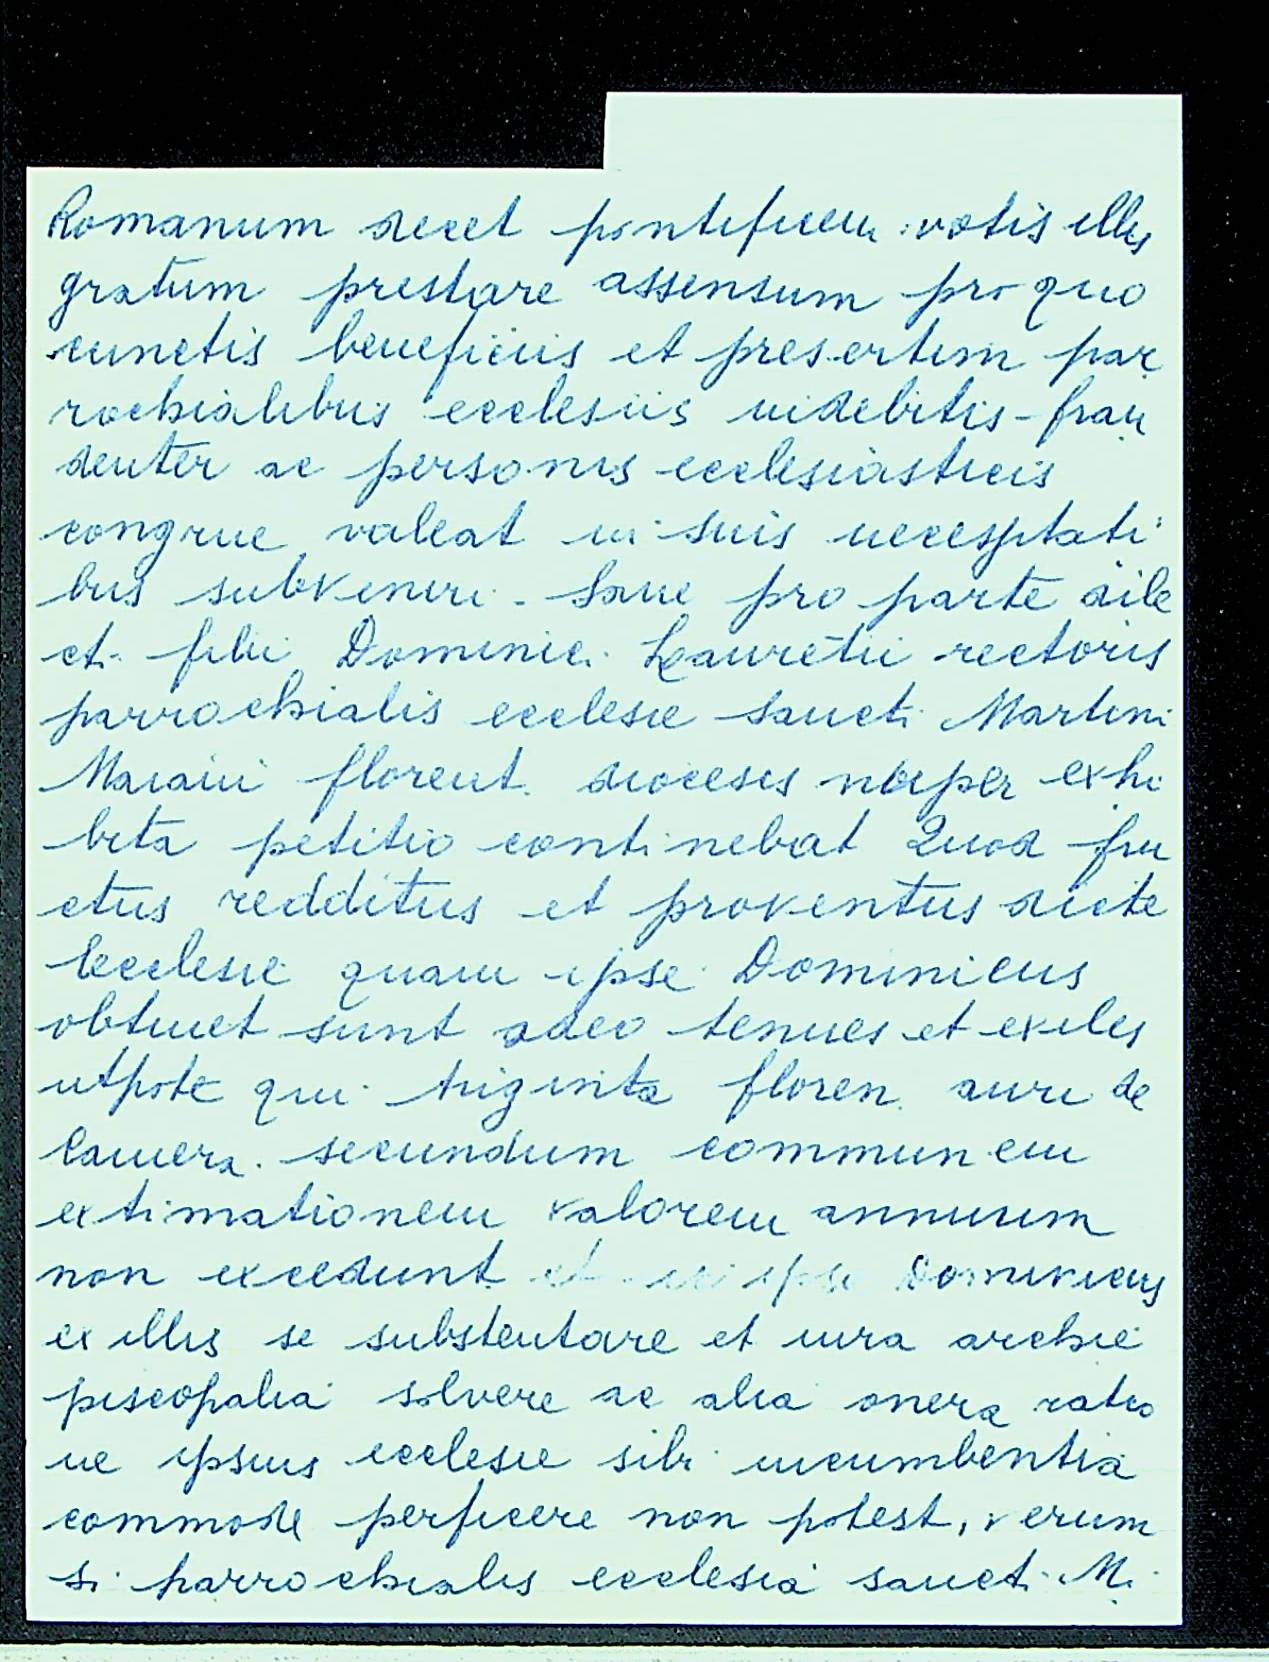 Romanum decet pontificem votis illis
gratum prestare assensum pro quo
cunctis beneficiis et presertim par
rochialibus ecclesiis indebitis frau
denter ac personis ecclesiasticis
congrue valeat in suis necessitati
bus subveniri. Sane pro parte dile
cti filii Dominici Lauretii rectoris
parrochialis ecclesie sancti Martini
florent. diocesis nuper exhi
bita petitio continebat Quod fru
ctus redditus et proventus dicte
Ecclesie quam ipse Dominicus
obtinet sunt adeo tenues et exiles
utpote qui triginta floren. auri de
Camera secundum communem
extimationem valorem annuum
non excedunt et ipse Dominicus
ex illis se substentare et iura archie
piscopalia solvere ac alia onera ratio
ne ipsius ecclesie sibi incumbentia
commode perficere non potest, verum
si parrochialis ecclesia sancti M.